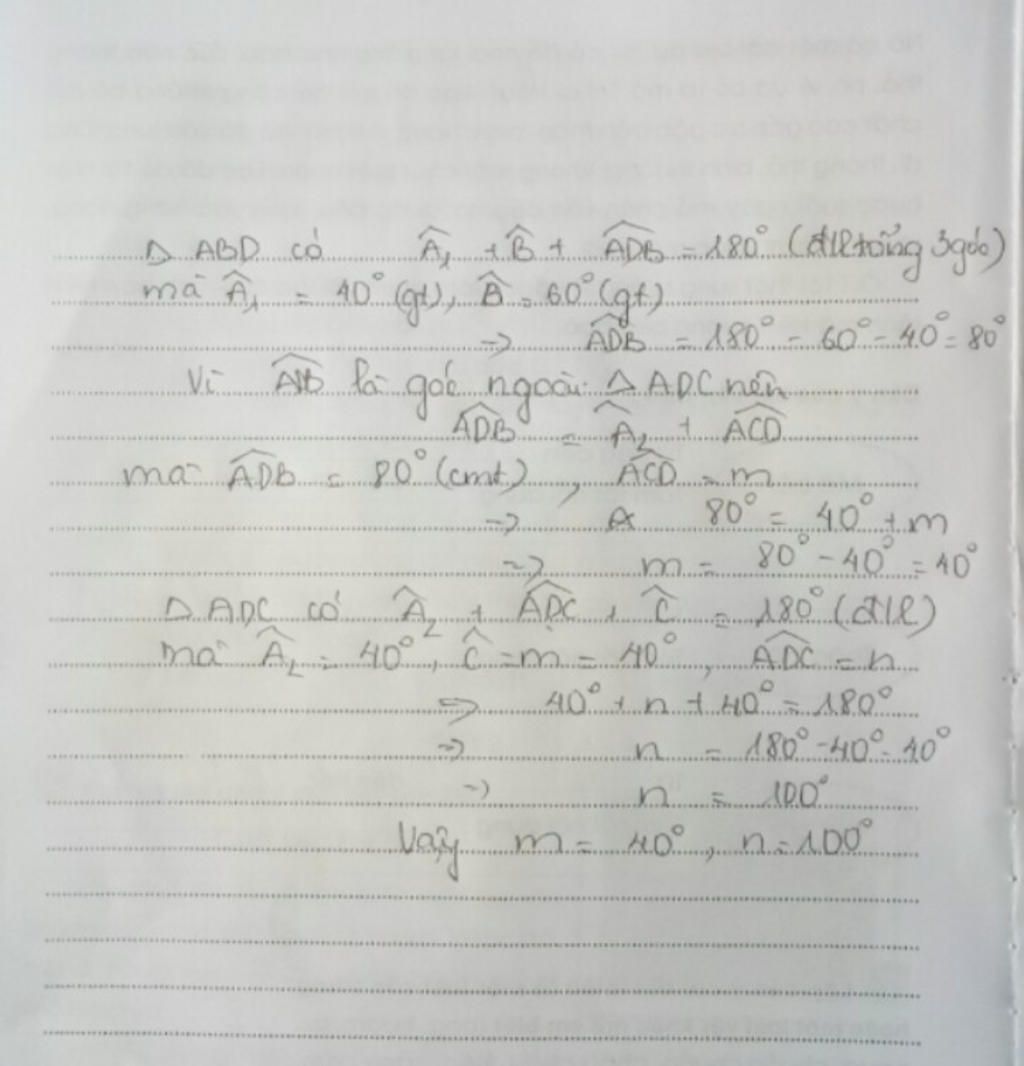 Δ ABD có Â₁ + B̂ + ADB̂ = 180° (đlí tổng 3 góc)
mà Â₁ = 40° (gt), B̂ = 60° (gt)
=> ADB̂ = 180° - 60° - 40° = 80°
Vì ADB̂ là góc ngoài Δ ADC nên
ADB̂ = Â₂ + ACD̂
mà ADB̂ = 80° (cmt), ACD̂ = m
=> 80° = 40° + m
=> m = 80° - 40° = 40°
Δ ADC có Â₂ + ADĈ + Ĉ = 180° (đlí)
mà Â₂ = 40°, Ĉ = m = 40°, ADĈ = n
=> 40° + n + 40° = 180°
=> n = 180° - 40° - 40°
=> n = 100°
Vậy m = 40°, n = 100°